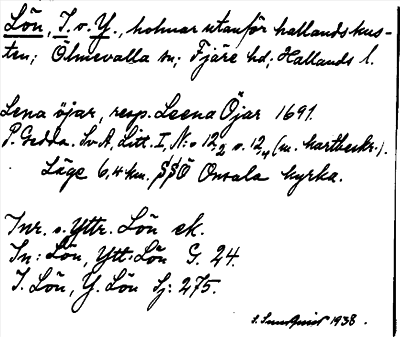 Lön, I. o. Y., holmar utanför hallandskus-
ten; Ölmevalla sn; Fjäre hd; Hallands l.
Lena öjar, resp. Leena Öjar 1691.
P. Gedda. SvA. Litt. I, N:o 12,2 o. 12,4 (m. kartbeskr.).
Läge 6,4 km. SSÖ Onsala kyrka.
Inr. o. Yttr. Lön ek.
In: Lön, Ytt: Lön G. 24.
I. Lön, Y. Lön Sj: 275.
S. Sundquist 1938.